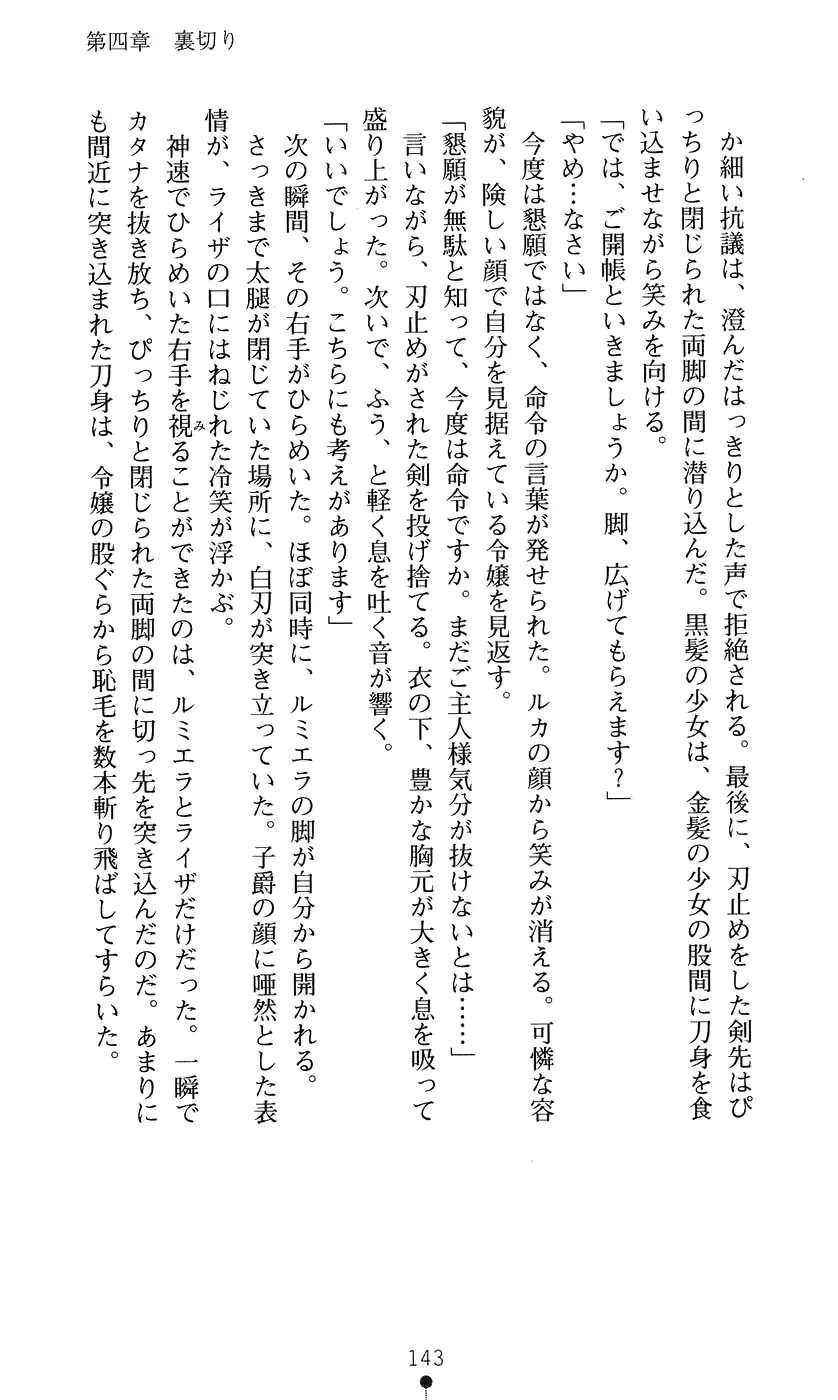 第四章　裏切り
か細い抗議は、澄んだはっきりとした声で拒絶される。最後に、刃止めをした剣先はぴ
っちりと閉じられた両脚の間に潜り込んだ。黒髪の少女は、金髪の少女の股間に刀身を食
い込ませながら笑みを向ける。
「では、ご開帳といきましょうか。脚、広げてもらえます？」
「やめ…なさい」
今度は懇願ではなく、命令の言葉が発せられた。ルカの顔から笑みが消える。可憐な容
貌が、険しい顔で自分を見据えている令嬢を見返す。
「懇願が無駄と知って、今度は命令ですか。まだご主人様気分が抜けないとは……」
言いながら、刃止めがされた剣を投げ捨てる。衣の下、豊かな胸元が大きく息を吸って
盛り上がった。次いで、ふう、と軽く息を吐く音が響く。
「いいでしょう。こちらにも考えがあります」
次の瞬間、その右手がひらめいた。ほぼ同時に、ルミエラの脚が自分から開かれる。
さっきまで太腿が閉じていた場所に、白刃が突き立っていた。子爵の顔に唖然とした表
情が、ライザの口にはねじれた冷笑が浮かぶ。
神速でひらめいた右手を視み ることができたのは、ルミエラとライザだけだった。一瞬で
カタナを抜き放ち、ぴっちりと閉じられた両脚の間に切っ先を突き込んだのだ。あまりに
も間近に突き込まれた刀身は、令嬢の股ぐらから恥毛を数本斬り飛ばしてすらいた。
143